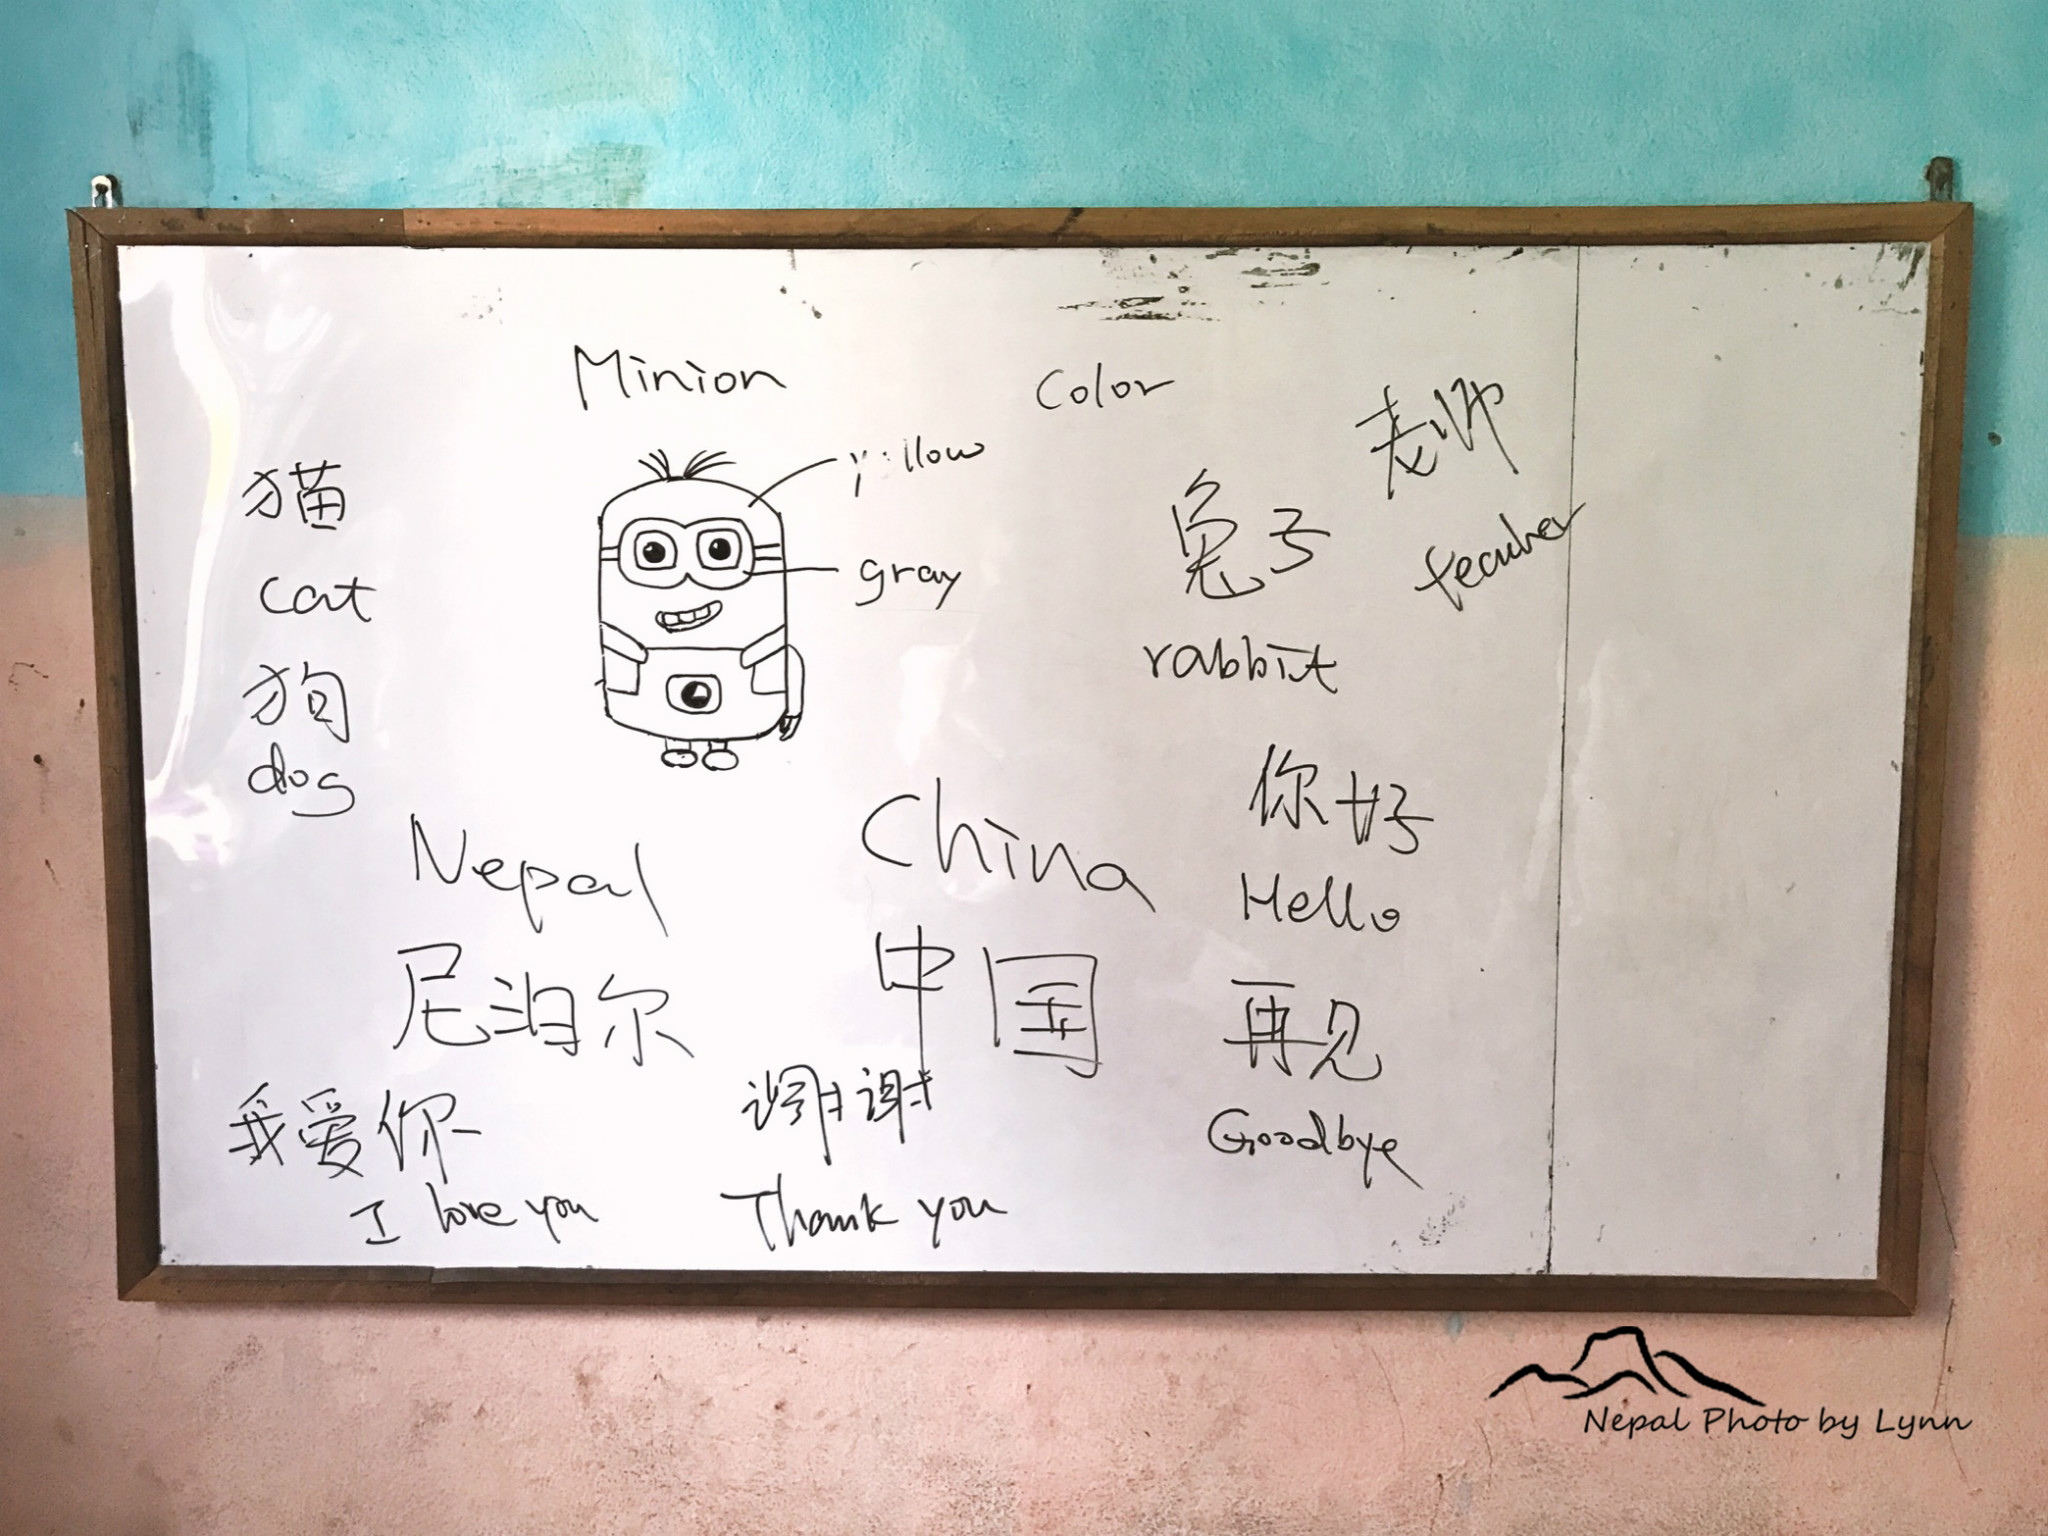 Minion
Color
yellow
gray
老师
teacher
猫
cat
狗
dog
兔子
rabbit
Nepal
尼泊尔
China
中国
你好
Hello
再见
Goodbye
我爱你
I love you
谢谢
Thank you
Nepal Photo by Lynn